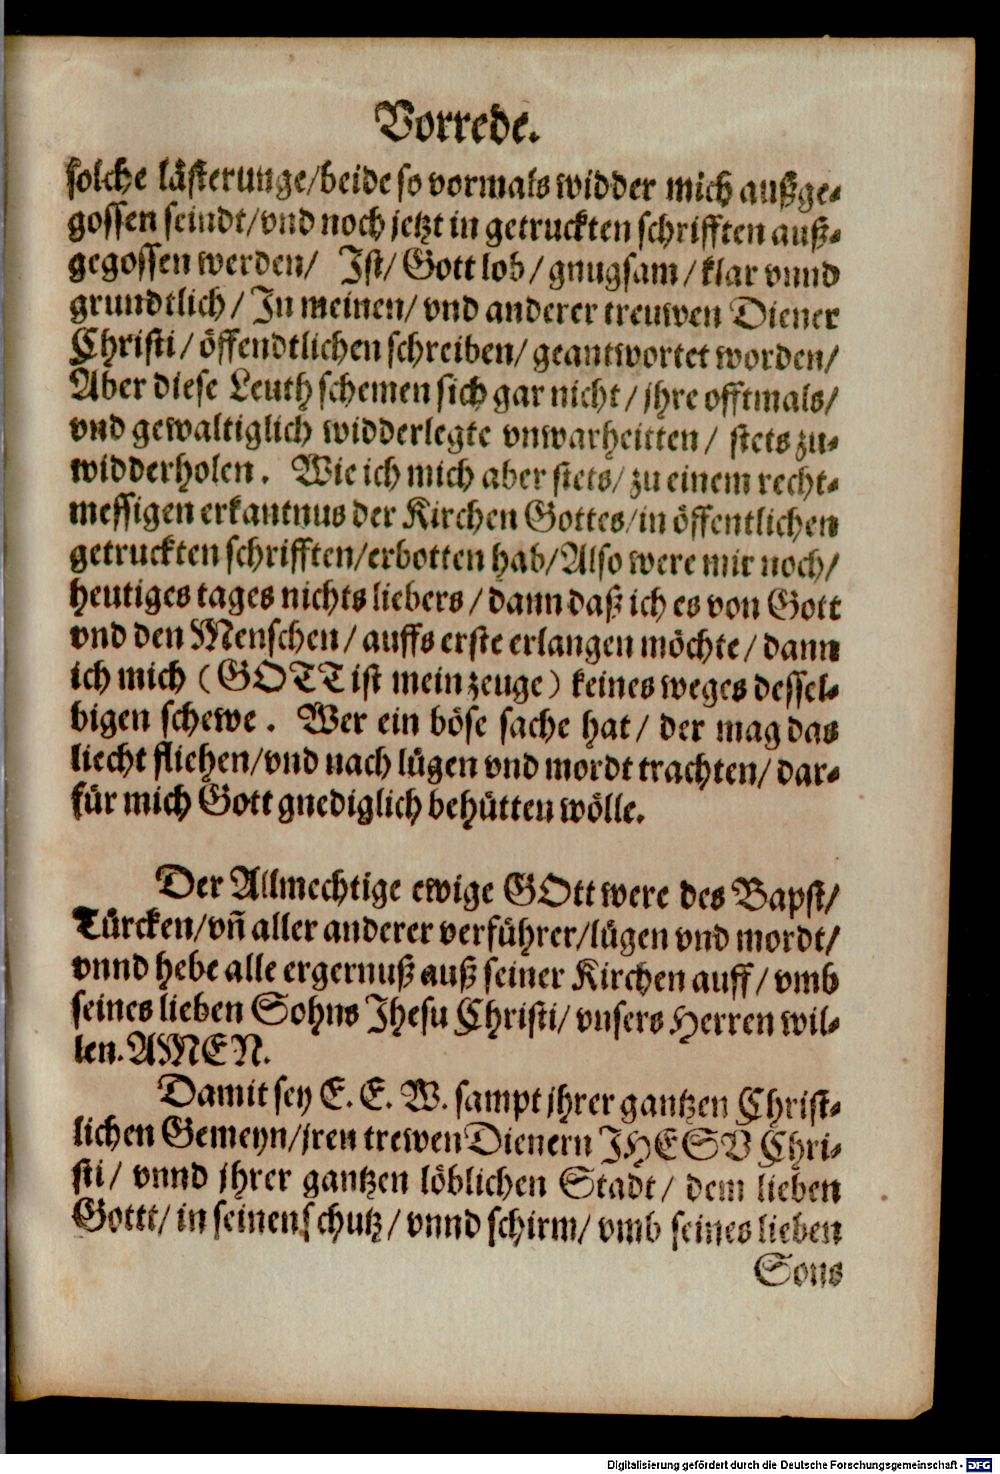 Vorrede.
solche lästerunge/beide so vormals widder mich außge-
gossen seindt/vnd noch jetzt in getruckten schrifften auß-
gegossen werden/ Jst/ Gott lob/ gnugsam/ klar vnnd
grundtlich/ Jn meinen/ vnd anderer treuwen Diener
Christi/ öffendtlichen schreiben/ geantwortet worden/
Aber diese Leuth schemen sich gar nicht/ jhre offtmals/
vnd gewaltiglich widderlegte vnwarheitten/ stets zu-
widderholen. Wie ich mich aber stets/ zu einem recht-
messigen erkantnus der Kirchen Gottes/in öffentlichen
getruckten schrifften/erbotten hab/Also were mir noch/
heutiges tages nichts liebers/ dann daß ich es von Gott
vnd den Menschen/ auffs erste erlangen möchte/ dann
ich mich (GOTT ist mein zeuge) keines weges dessel-
bigen schewe. Wer ein böse sache hat/ der mag das
liecht fliehen/vnd nach lügen vnd mordt trachten/ dar-
für mich Gott gnediglich behütten wölle.
Der Allmechtige ewige GOtt were des Bapst/
Türcken/vn̄ aller anderer verführer/lügen vnd mordt/
vnnd hebe alle ergernuß auß seiner Kirchen auff/ vmb
seines lieben Sohns Jhesu Christi/ vnsers Herren wil-
len. AMEN.
Damit sey E. E. W. sampt jhrer gantzen Christ-
lichen Gemeyn/jren trewen Dienern JHESV Chri-
sti/ vnnd jhrer gantzen löblichen Stadt/ dem lieben
Gottt/ in seinen schutz/ vnnd schirm/ vmb seines lieben
Sons
Digitalisierung gefördert durch die Deutsche Forschungsgemeinschaft - DFG